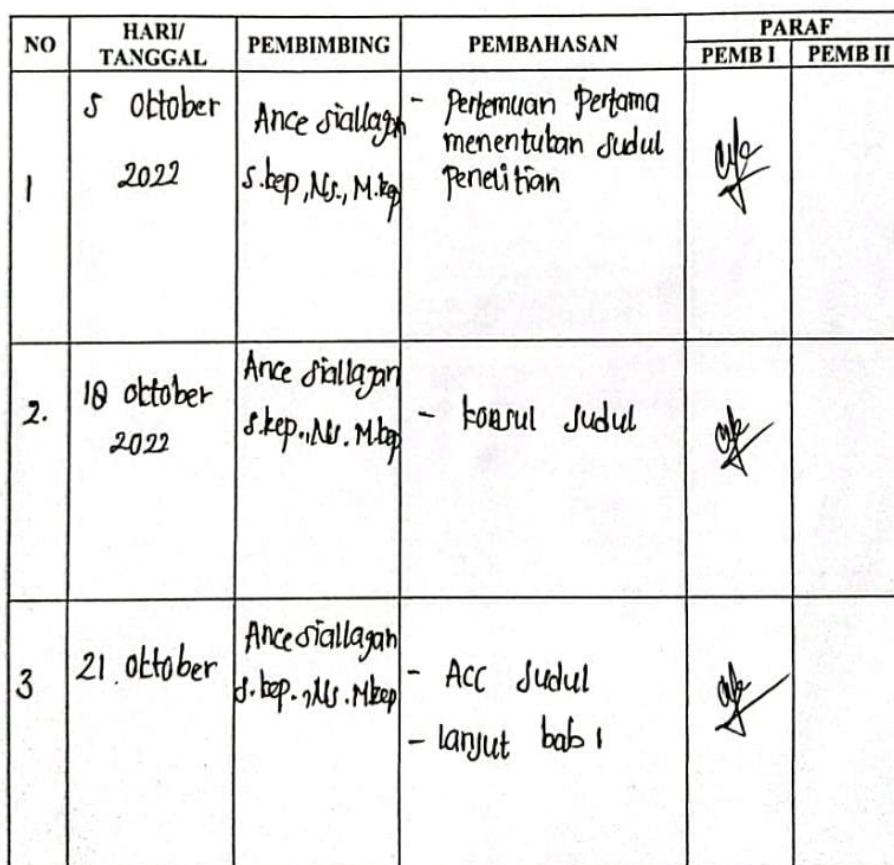 NO HARI/ TANGGAL PEMBIMBING PEMBAHASAN PARAF
PEMB I PEMB II
1 5 Oktober 2022 Ance Siallagan S.kep, Ns., M.kep - Pertemuan Pertama
menentukan Judul
Penelitian
2. 18 oktober 2022 Ance Siallagan S.kep., Ns. M.kep - konsul Judul
3 21 oktober Ance Siallagan S.kep., Ns. Mkep - Acc Judul
- lanjut bab 1